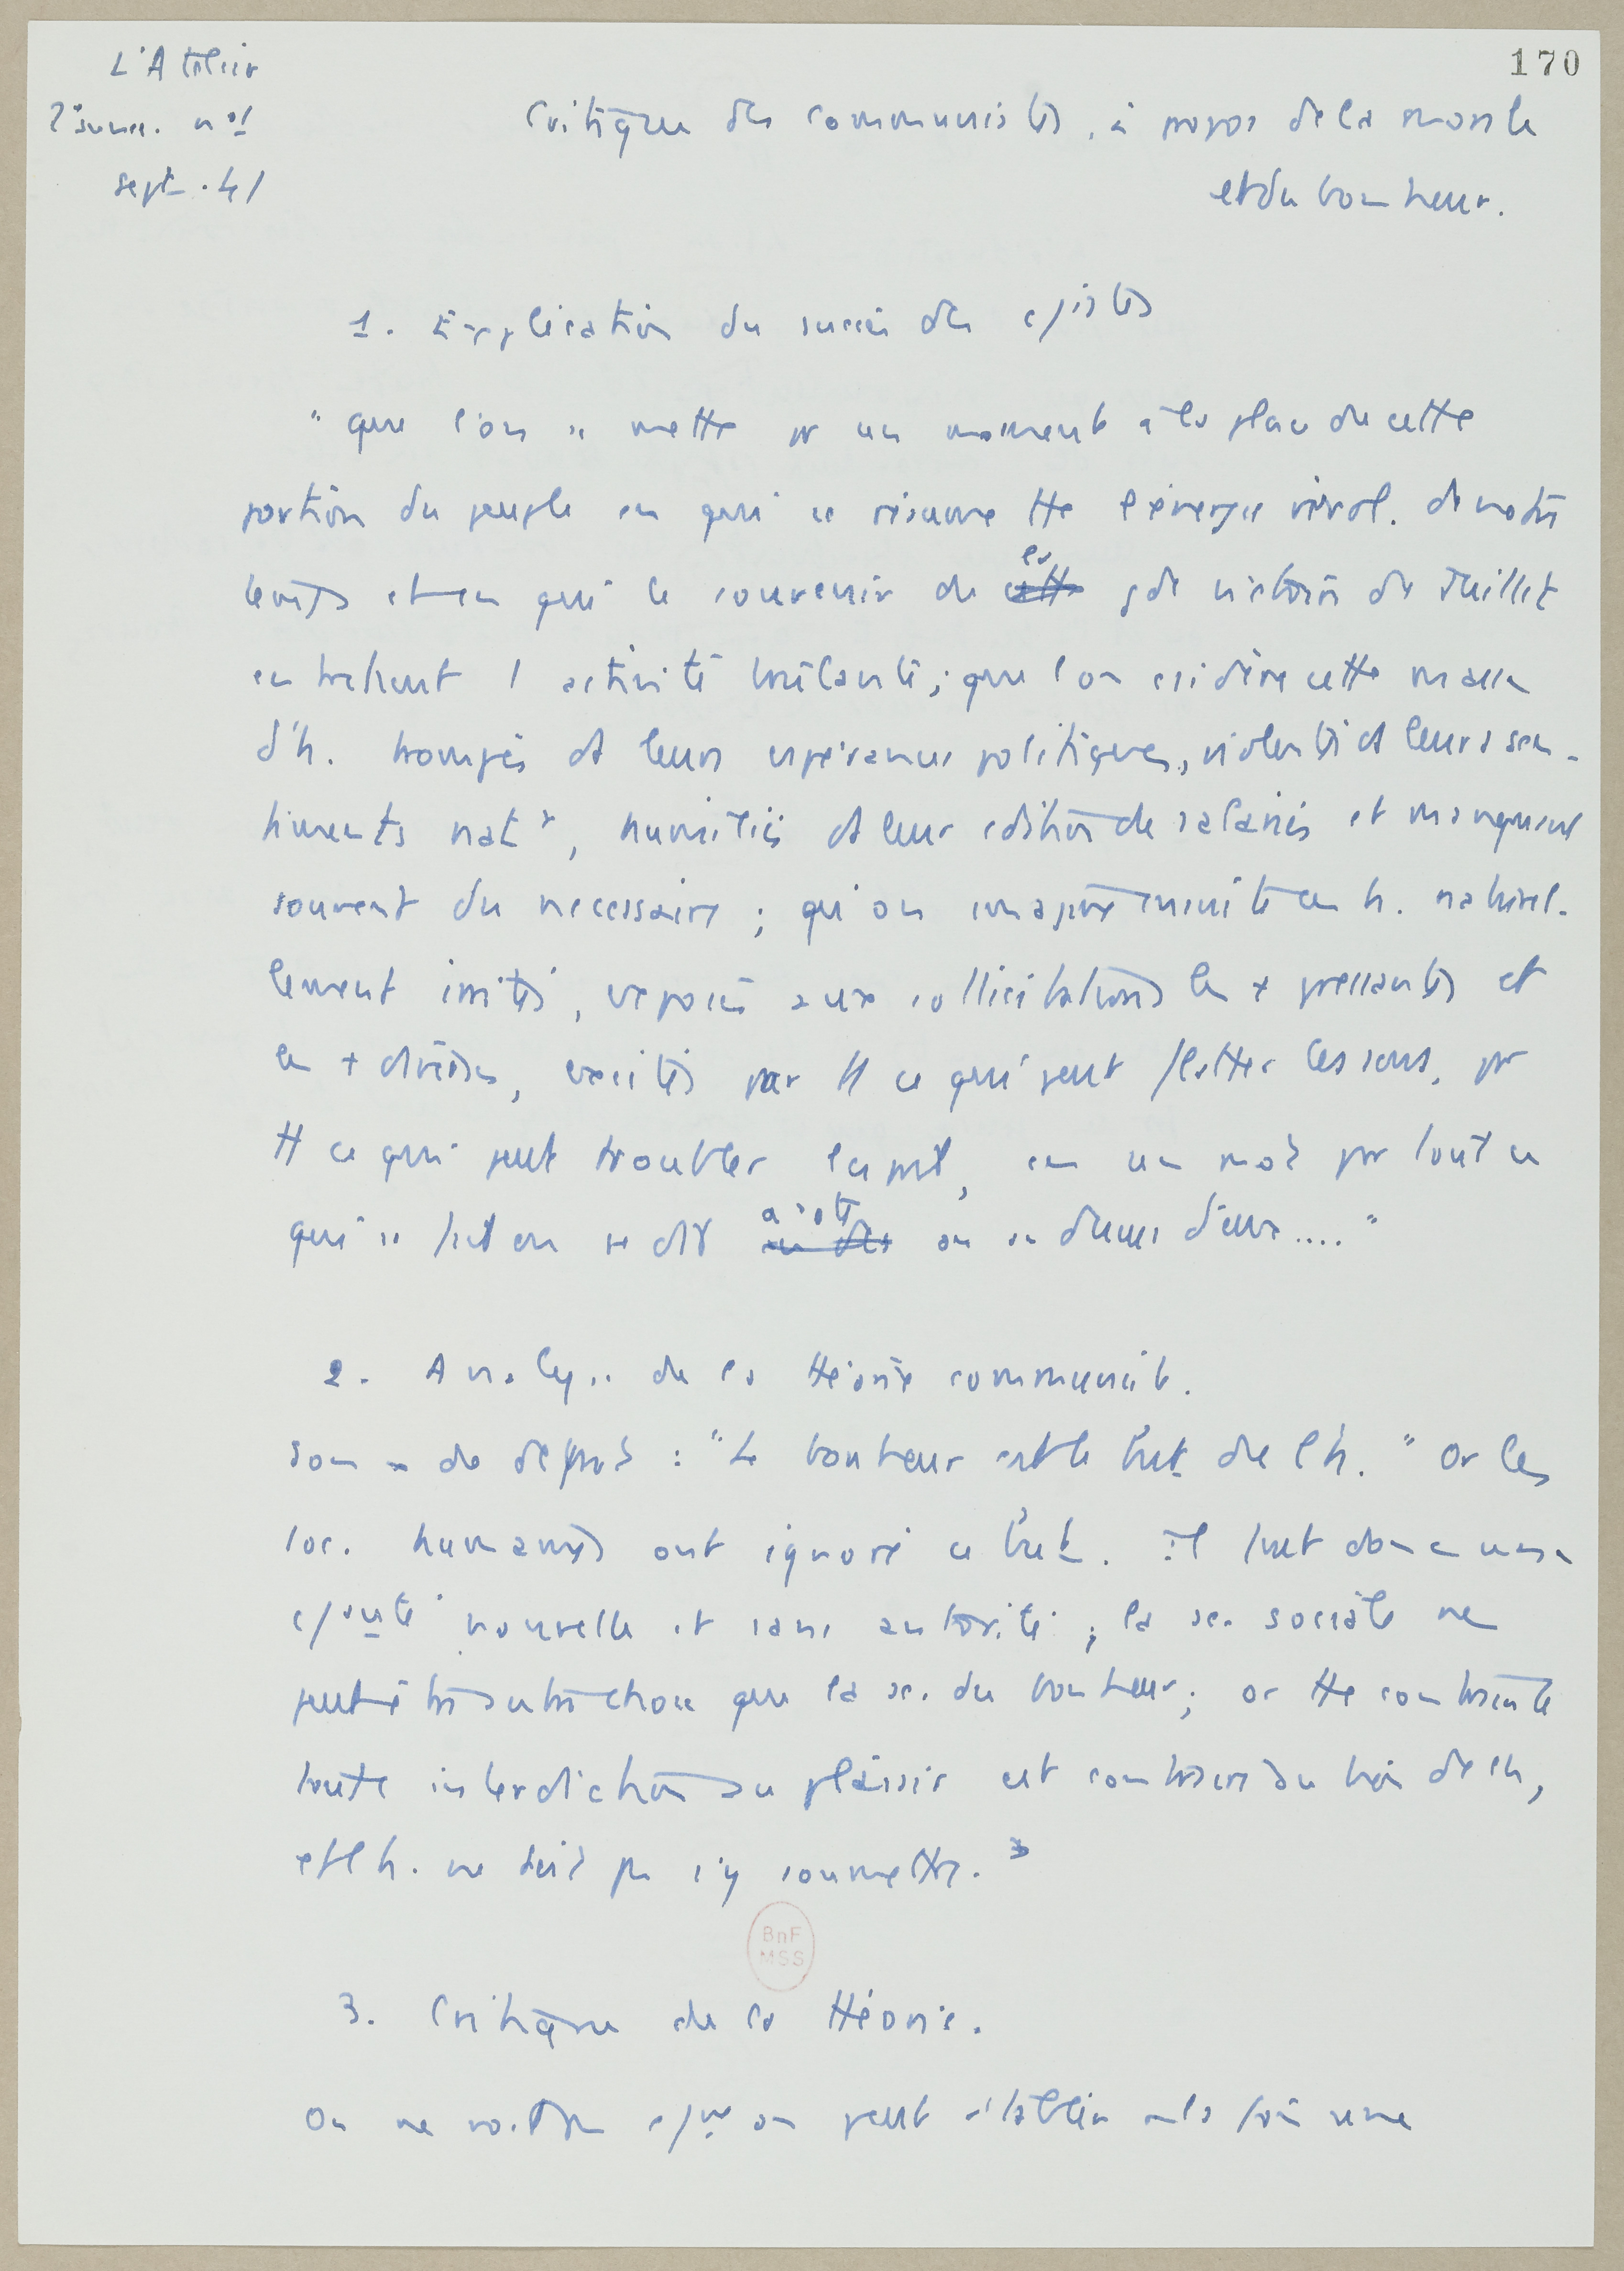 170
L'Atelier
2° année. n°1
sept. 41
Critique des communistes, à propos de la morale
et du bonheur.
1. Explication du succès des c/istes
"que l'on se mette pr un moment à la place de cette
portion du peuple en qui se résume tte l'énergie révol. de notre
temps et en qui le souvenir de cette la gde victoire de Juillet
entretient l'activité brûlante ; que l'on csidère cette masse
d'h. trompés ds leurs espérances politiques, violentés ds leurs sen-
timents nat x, humiliés ds leur cdition de salariés et manquant
souvent du necessaire ; qu'on imagine ensuite ces h. naturel-
lement irrités, exposés aux sollicitations les + pressantes et
les + diverses, excités par tt ce qui peut flatter les sens, pr
tt ce qui peut troubler l'esprit, en un mot par tout ce
qui se fait ou se dit au des à côté ou au dessus d'eux...."
2. Analyse de la théorie communiste.
son de départ : "Le bonheur est le but de l'h." Or les
soc. humaines ont ignoré ce but. Il faut donc une
c/auté nouvelle et sans autorité ; la sc. sociale ne
peut être autre chose que la sc. du bonheur ; or tte contrainte
toute interdiction du plaisir est contraire au but de l'h,
et l'h. ne doit pas s'y soumettre.
3. Critique de la théorie.
On ne voit pas c/me on peut établir cela sur une